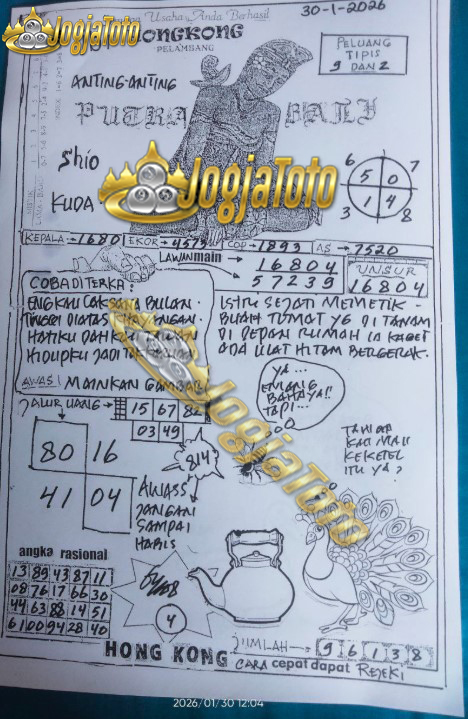 Usaha, Anda Berhasil
30-1-2026
JogjaToto
HONGKONG
PELAMBANG
PELUANG
TIPIS
9 DAN 2
ANTING-ANTING
PUTRA BALI
Shio
KUDA
JogjaToto
6 7
5 0
1 4
3 8
KEPALA → 1680 EKOR → 4573 COP → 1893 AS → 7520
LAWAN main
16804
57239
UNSUR
16804
COBA DITERKA:
ENGKAU BULAN.
TINGGI DIATAS
HATIKU
HIDUPKU JADI
AWAS! MAINKAN GAMBAR
ISTRI SEJATI MEMETIK -
BUAH TUMAT YG DI TANAM
DI DEPAN RUMAH IA KAGET
ADA ULAT HITAM BERGERAK.
JALUR UANG →
15 67 82
03 49
YA...
EMANG
BAHAYA!!
TAPI...
JogjaToto
80 16
41 04
814
AWASS
JANGAN
SAMPAI
HABIS
KAU MAU
ITU YA?
angka rasional
13 89 43 87 11
08 76 17 66 30
44 63 88 14 51
61 00 94 28 40
4
JUMLAH → 9 6 1 3 8
HONG KONG
CARA cepat dapat REJEKI
2026/01/30 12:04